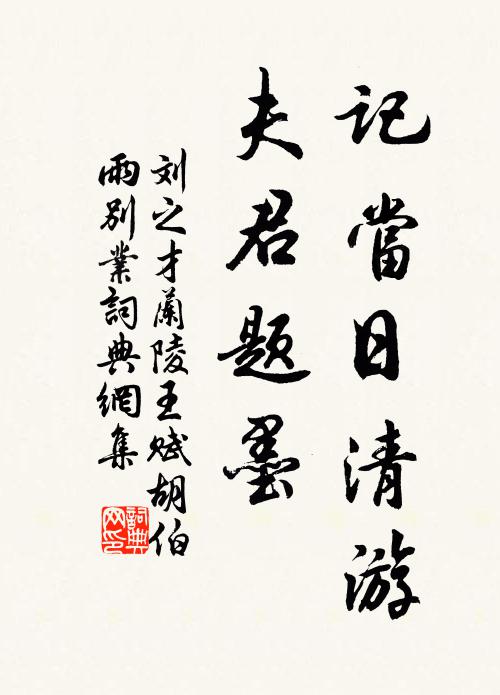 記當日清游
夫君题墨
刘之才蘭陵王赋胡伯
雨别業詞典網集
詞典网印